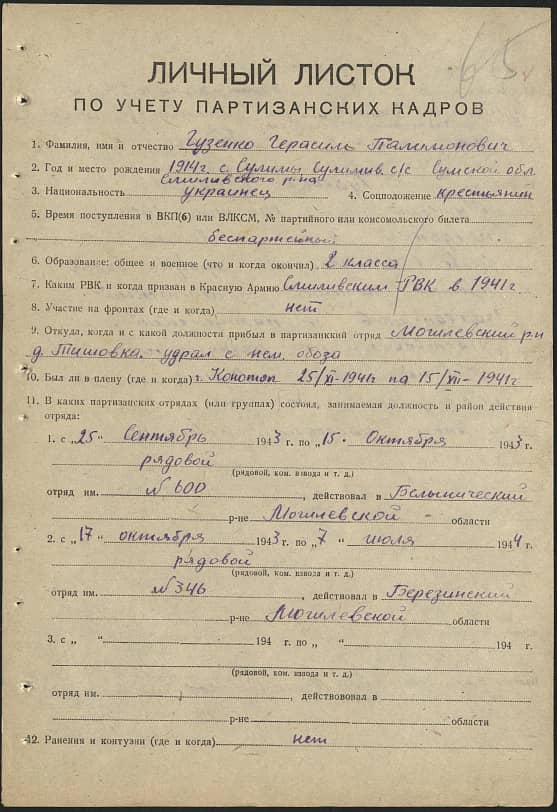 65
ЛИЧНЫЙ ЛИСТОК
ПО УЧЕТУ ПАРТИЗАНСКИХ КАДРОВ
1. Фамилия, имя и отчество Гузенко Герасим
2. Год и место рождения 1914г. с. Сулимы Сулимив. с/с Сумской обл.
Смиливского р-на
3. Национальность украинец 4. Соцположение крестьянин
5. Время поступления в ВКП(б) или ВЛКСМ, № партийного или комсомольского билета
беспартейный
6. Образование: общее и военное (что и когда окончил) 2 класса
7. Каким РВК и когда призван в Красную Армию Смиливским РВК в 1941г
8. Участие на фронтах (где и когда) нет
9. Откуда, когда и с какой должности прибыл в партизанкий отряд Могилевский р-н
д. Тишовка. удрал с нем. обоза
10. Был ли в плену (где и когда) г. Конотоп 25/XI-1941г па 15/XII-1941г
11. В каких партизанских отрядах (или группах) состоял, занимаемая должность и район действия
отряда:
1. с „25“ Сентябрь 1943 г. по „15“ Октября 1943 г.
рядовой
(рядовой, ком. взвода и т. д.)
отряд им. №600, действовал в Белынический
р-не Могилевской области
2. с „17“ октября 1943 г. по „7“ июля 1944 г.
рядовой
(рядовой, ком. взвода и т. д.)
отряд им. №346, действовал в Березинский
р-не Могилевской области
3. с „ “ 194 г. по „ “ 194 г.
(рядовой, ком. взвода и т. д.)
отряд им. , действововал в
р-не области
12. Ранения и контузии (где и когда) нет